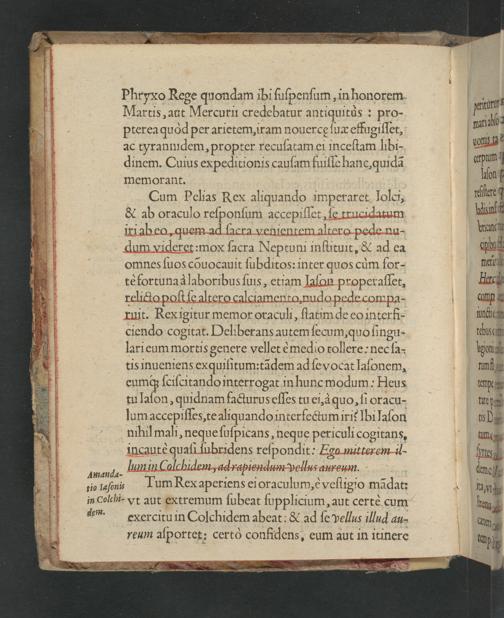 Phryxo Rege quondam ibi suspensum, in honorem
Martis, aut Mercurii credebatur antiquitùs : pro-
pterea quòd per arietem, iram novercę suæ effugisset,
ac tyrannidem, propter recusatam ei incestam libi-
dinem. Cuius expeditionis causam fuisse hanc, quidā
memorant.
Cum Pelias Rex aliquando imperaret Iolci,
& ab oraculo responsum accepisset, se trucidatum
iri ab eo, quem ad sacra venientem altero pede nu-
dum videret: mox sacra Neptuni instituit, & ad ea
omnes suos cōvocauit subditos: inter quos cùm for-
tè fortuna à laboribus suis, etiam Iason properasset,
relicto post se altero calciamento, nudo pede compa-
ruit. Rex igitur memor oraculi, statim de eo interfi-
ciendo cogitat. Deliberans autem secum, quo singu-
lari eum mortis genere vellet è medio tollere: nec sa-
tis inueniens exquisitum: tādem ad se vocat Iasonem,
eumq; sciscitando interrogat in hunc modum: Heus
tu Iason, quidnam facturus esses tu ei, à quo, si oracu-
lum accepisses, te aliquando interfectum iri? Ibi Iason
nihil mali, neque suspicans, neque periculi cogitans,
incautè quasi subridens respondit: Ego mitterem il-
lum in Colchidem, ad rapiendum vellus aureum.
Amanda-
tio Iasonis
in Colchi-
dem.
Tum Rex aperiens ei oraculum, è vestigio mādat:
vt aut extremum subeat supplicium, aut certè cum
exercitu in Colchidem abeat: & ad se vellus illud au-
reum asportet: certò confidens, eum aut in itinere